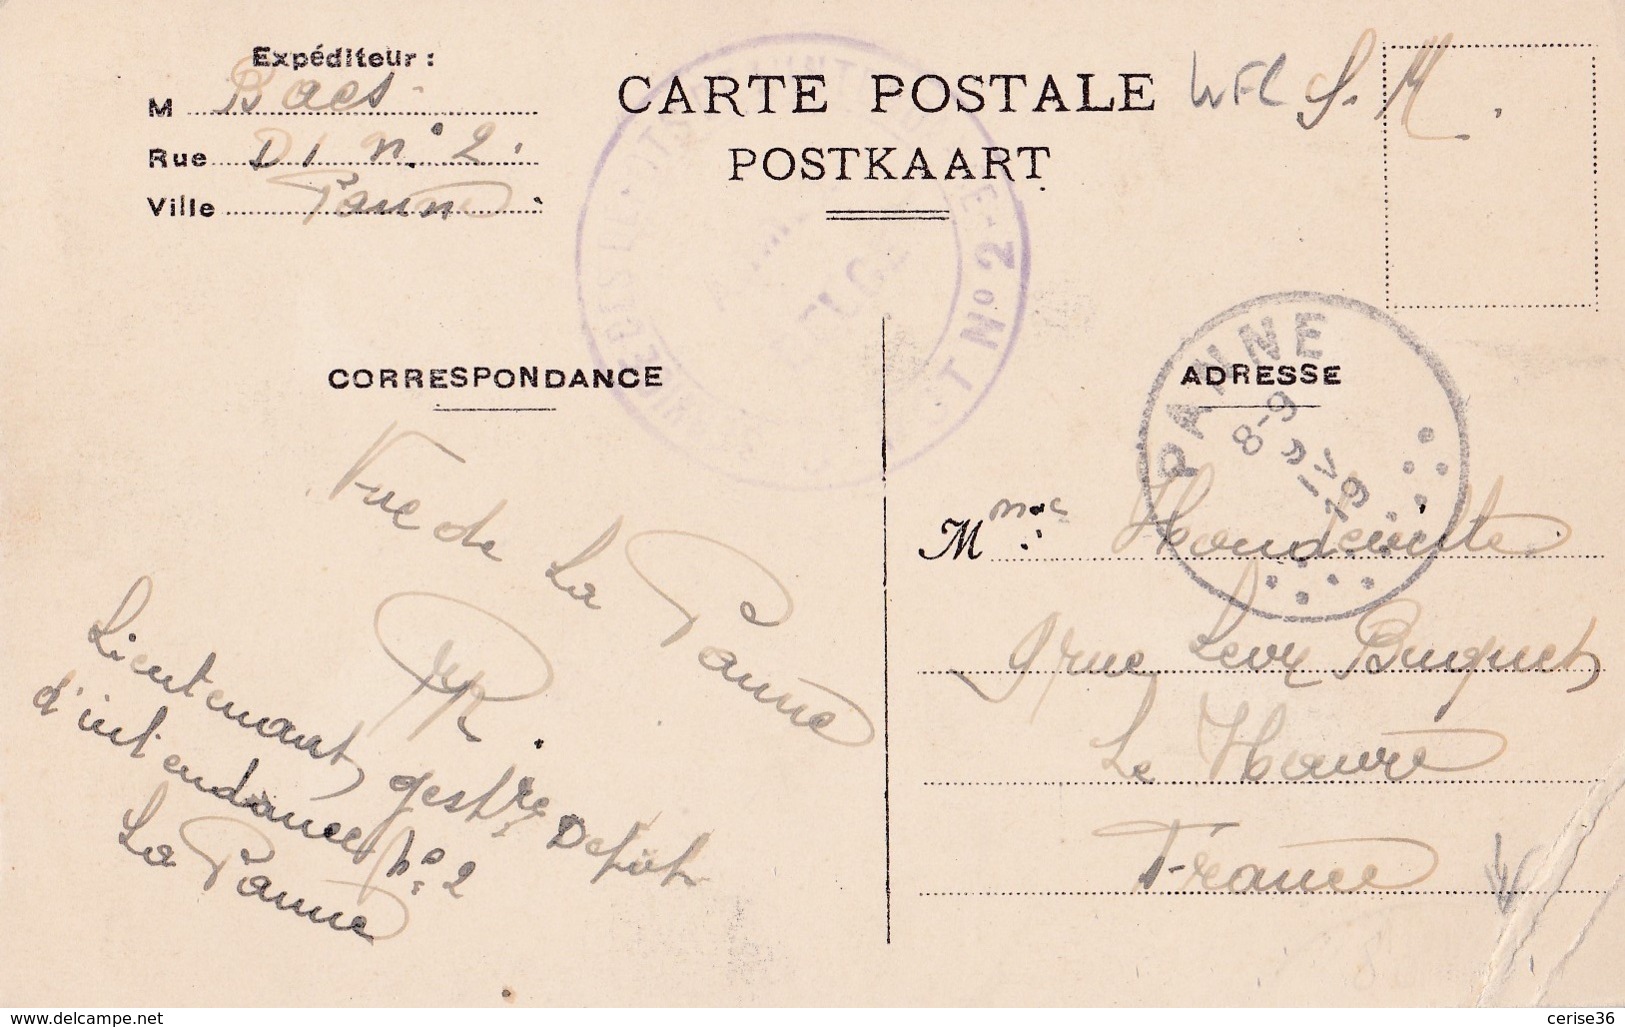 Expéditeur :
M Baes
Rue DI n° 2.
Ville Panne
CARTE POSTALE
POSTKAART
S. M.
Nº 2
CORRESPONDANCE
ADRESSE
PANNE
8-9
IV
19
Vue de La Panne
Lieutenant, gestre Depôt
d'intendance n° 2
La Panne
Mme
9 rue Levy
Le Havre
France
www.delcampe.net
cerise36